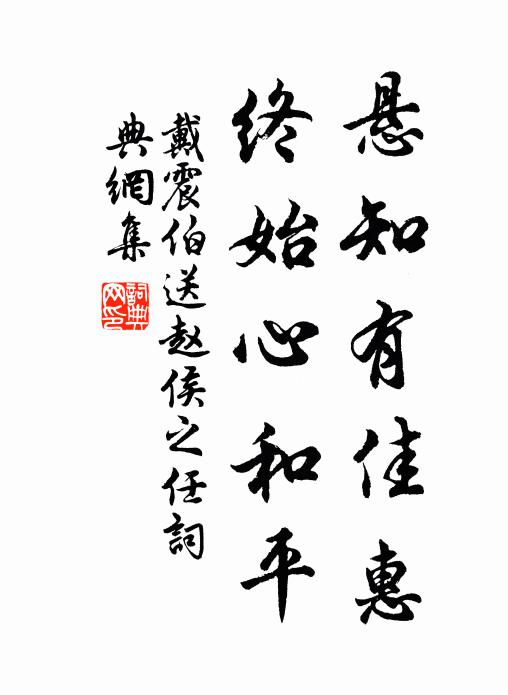 悬知有佳惠
终始心和平
戴震伯送赵侯之任詞
典網集
詞典
网印